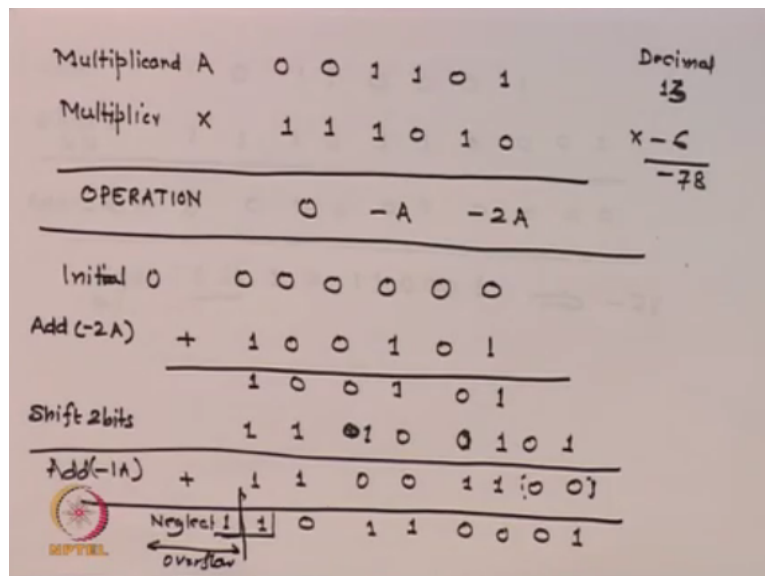 Multiplicand A 0 0 1 1 0 1 Decimal
13
Multiplier X 1 1 1 0 1 0 x -6
-78
OPERATION 0 -A -2A
Initial 0 0 0 0 0 0 0
Add (-2A) + 1 0 0 1 0 1
1 0 0 1 0 1
Shift 2bits 1 1 1 0 0 1 0 1
Add(-1A) + 1 1 0 0 1 1 (0 0)
Neglect 1 1 0 1 1 0 0 0 1
overflow
NPTEL